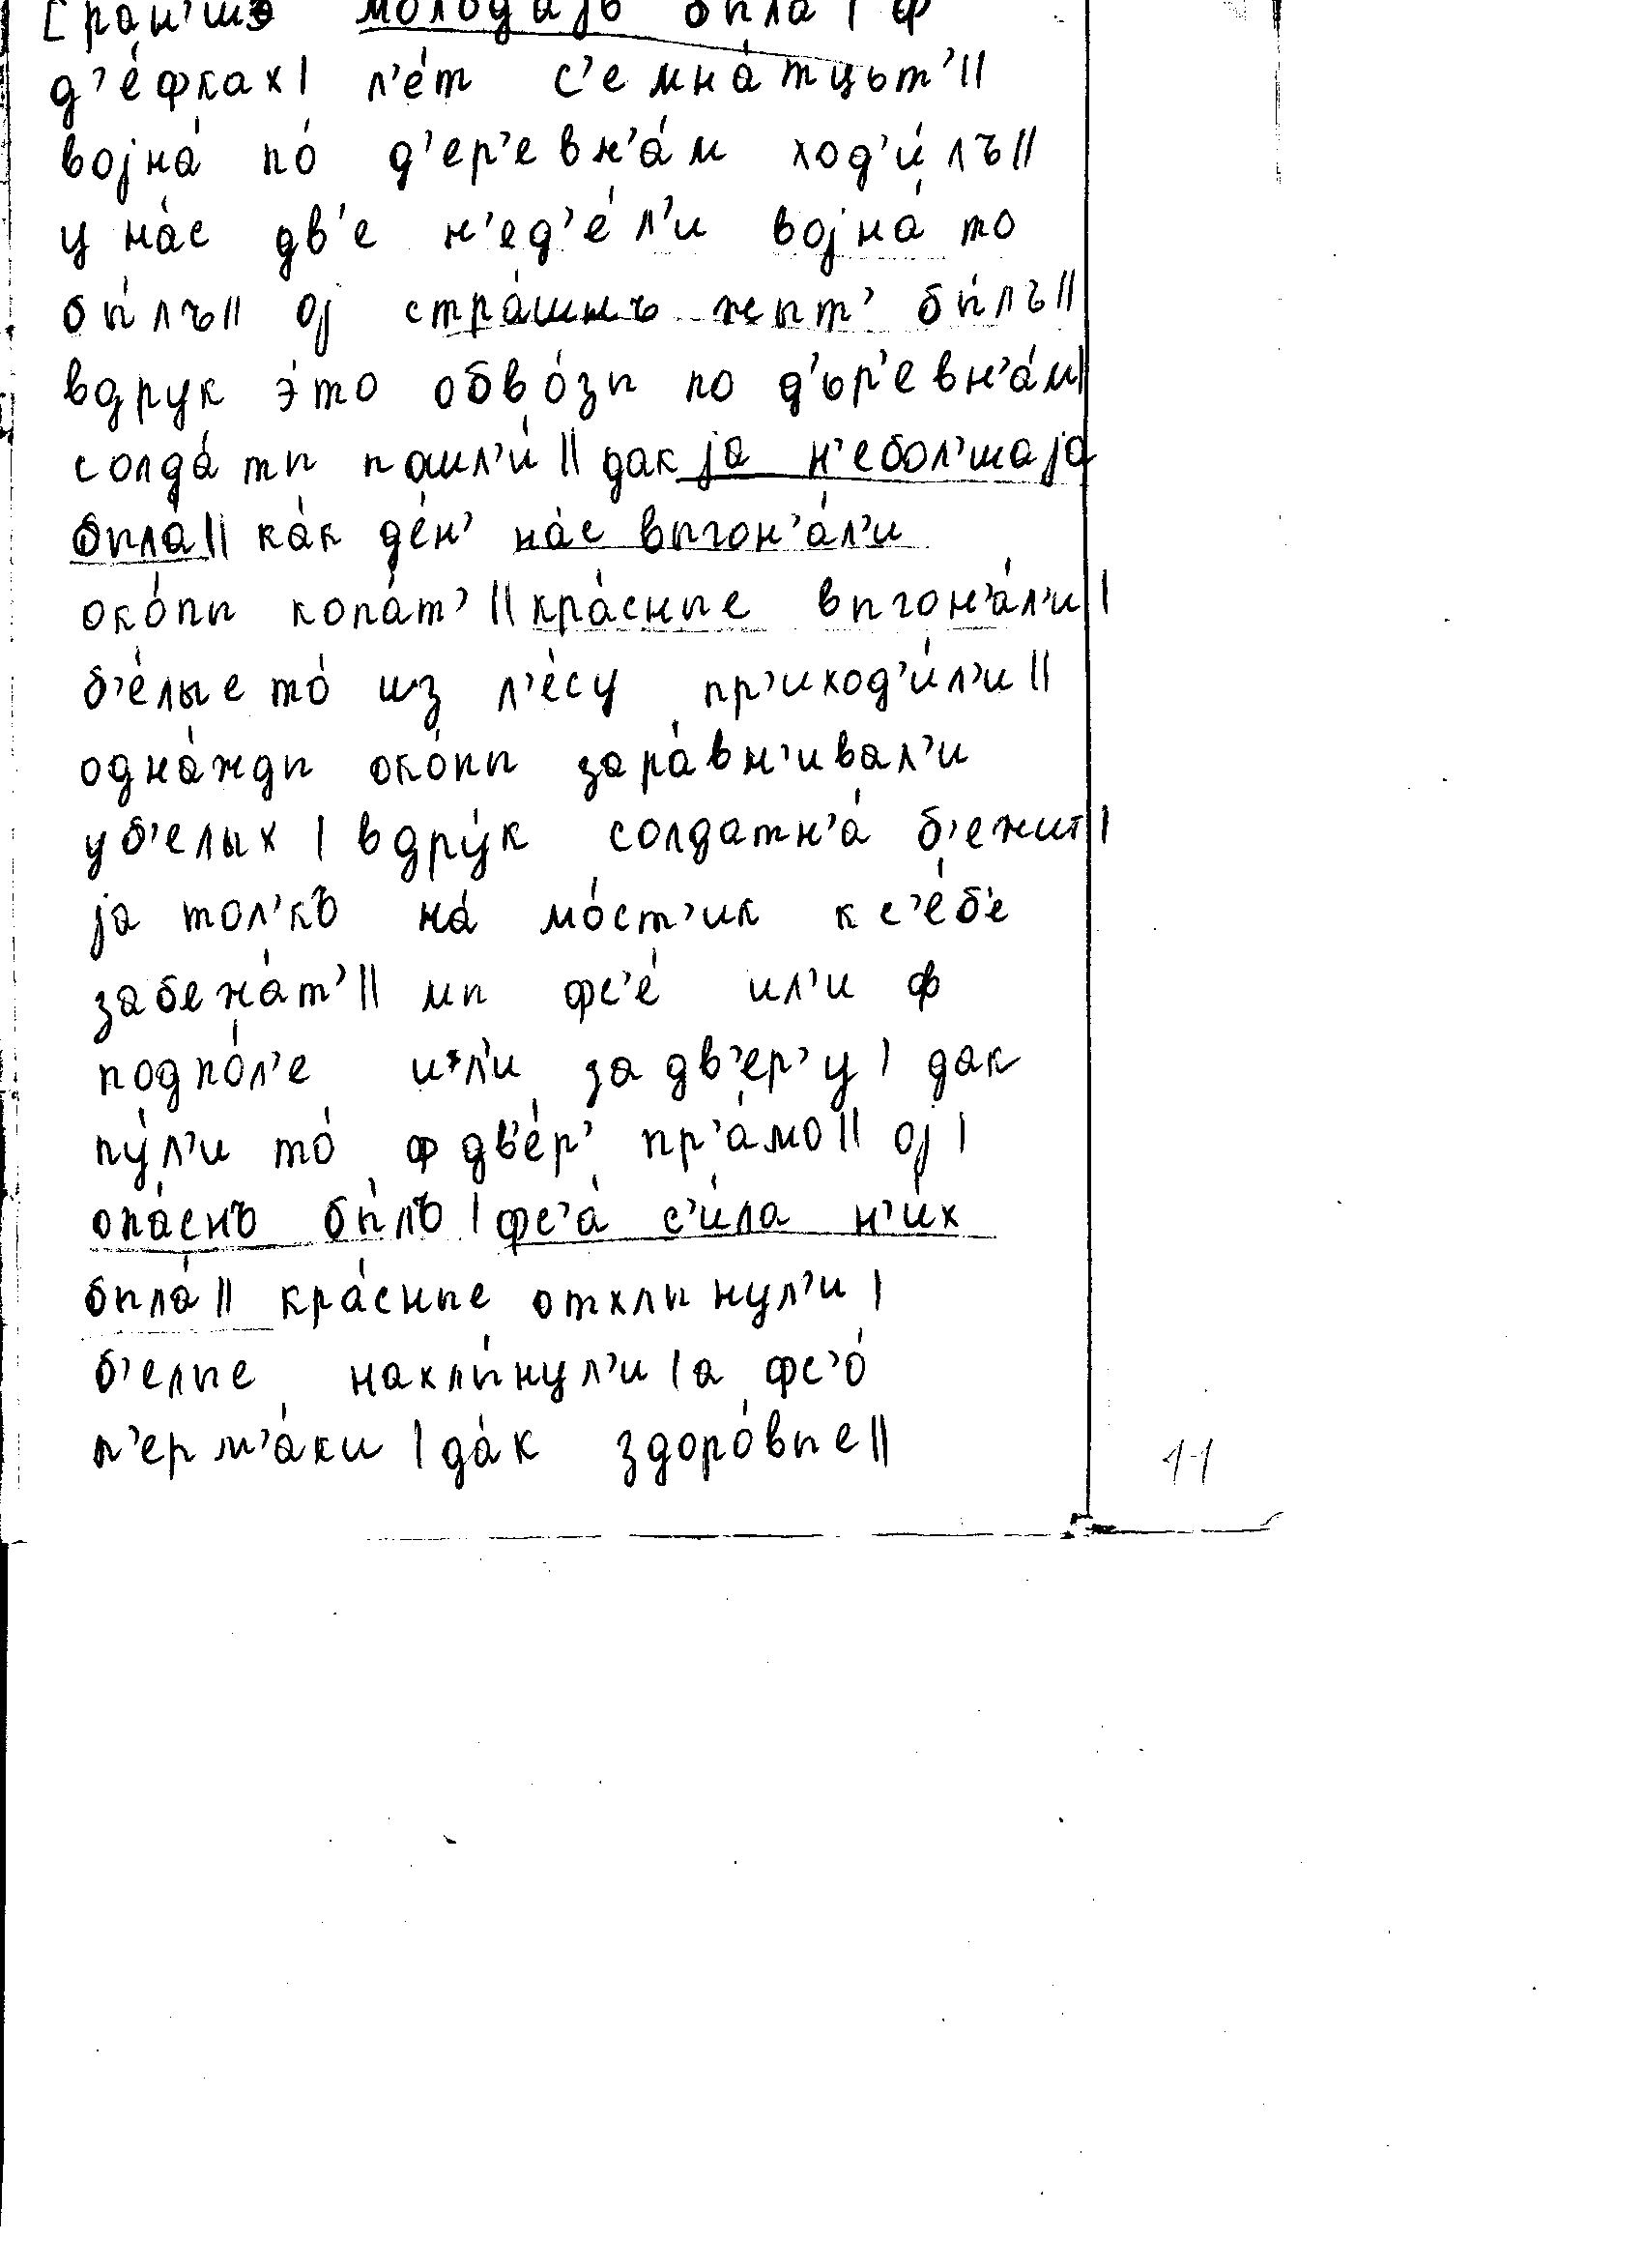 [ра́н'шэ молода́јь была | ф
д'е́фках | л'е́т с'емна́тцът' ||
војна́ по́ д'ер'евн'а́м ход'и́лъ ||
у на́с дв'е н'ед'е́л'и војна́ то
бы́лъ || ој стра́шнъ жыт' бы́лъ ||
вдрук э́то обво́зы по д'ър'евн'а́м |
солда́ты пошл'и́ || дак ја н'ебол'шаја
была́ || ка́к де́н' на́с выгон'а́л'и
око́пы копа́т' || кра́сные выгон'а́л'и |
б'е́лые то́ из л'е́су пр'иход'и́л'и ||
одна́жды око́пы зара́вн'ивал'и
у б'елых | вдру́к солдатн'а́ б'ежит |
ја тол'къ на́ мо́ст'ик к с'е́б'е
забежа́т' || мы фс'е́ ил'и ф
подпо́л'е ил'и за дв'ер'у | дак
пу́л'и то́ ф две́р' пр'а́мо || ој |
опа́снъ бы́лъ | фс'а́ с'и́ла н'и́х
была́ || кра́сные отхлынул'и |
б'елые нахлы́нул'и | а фс'о́
п'ерм'а́ки | да́к здоро́вые ||
11